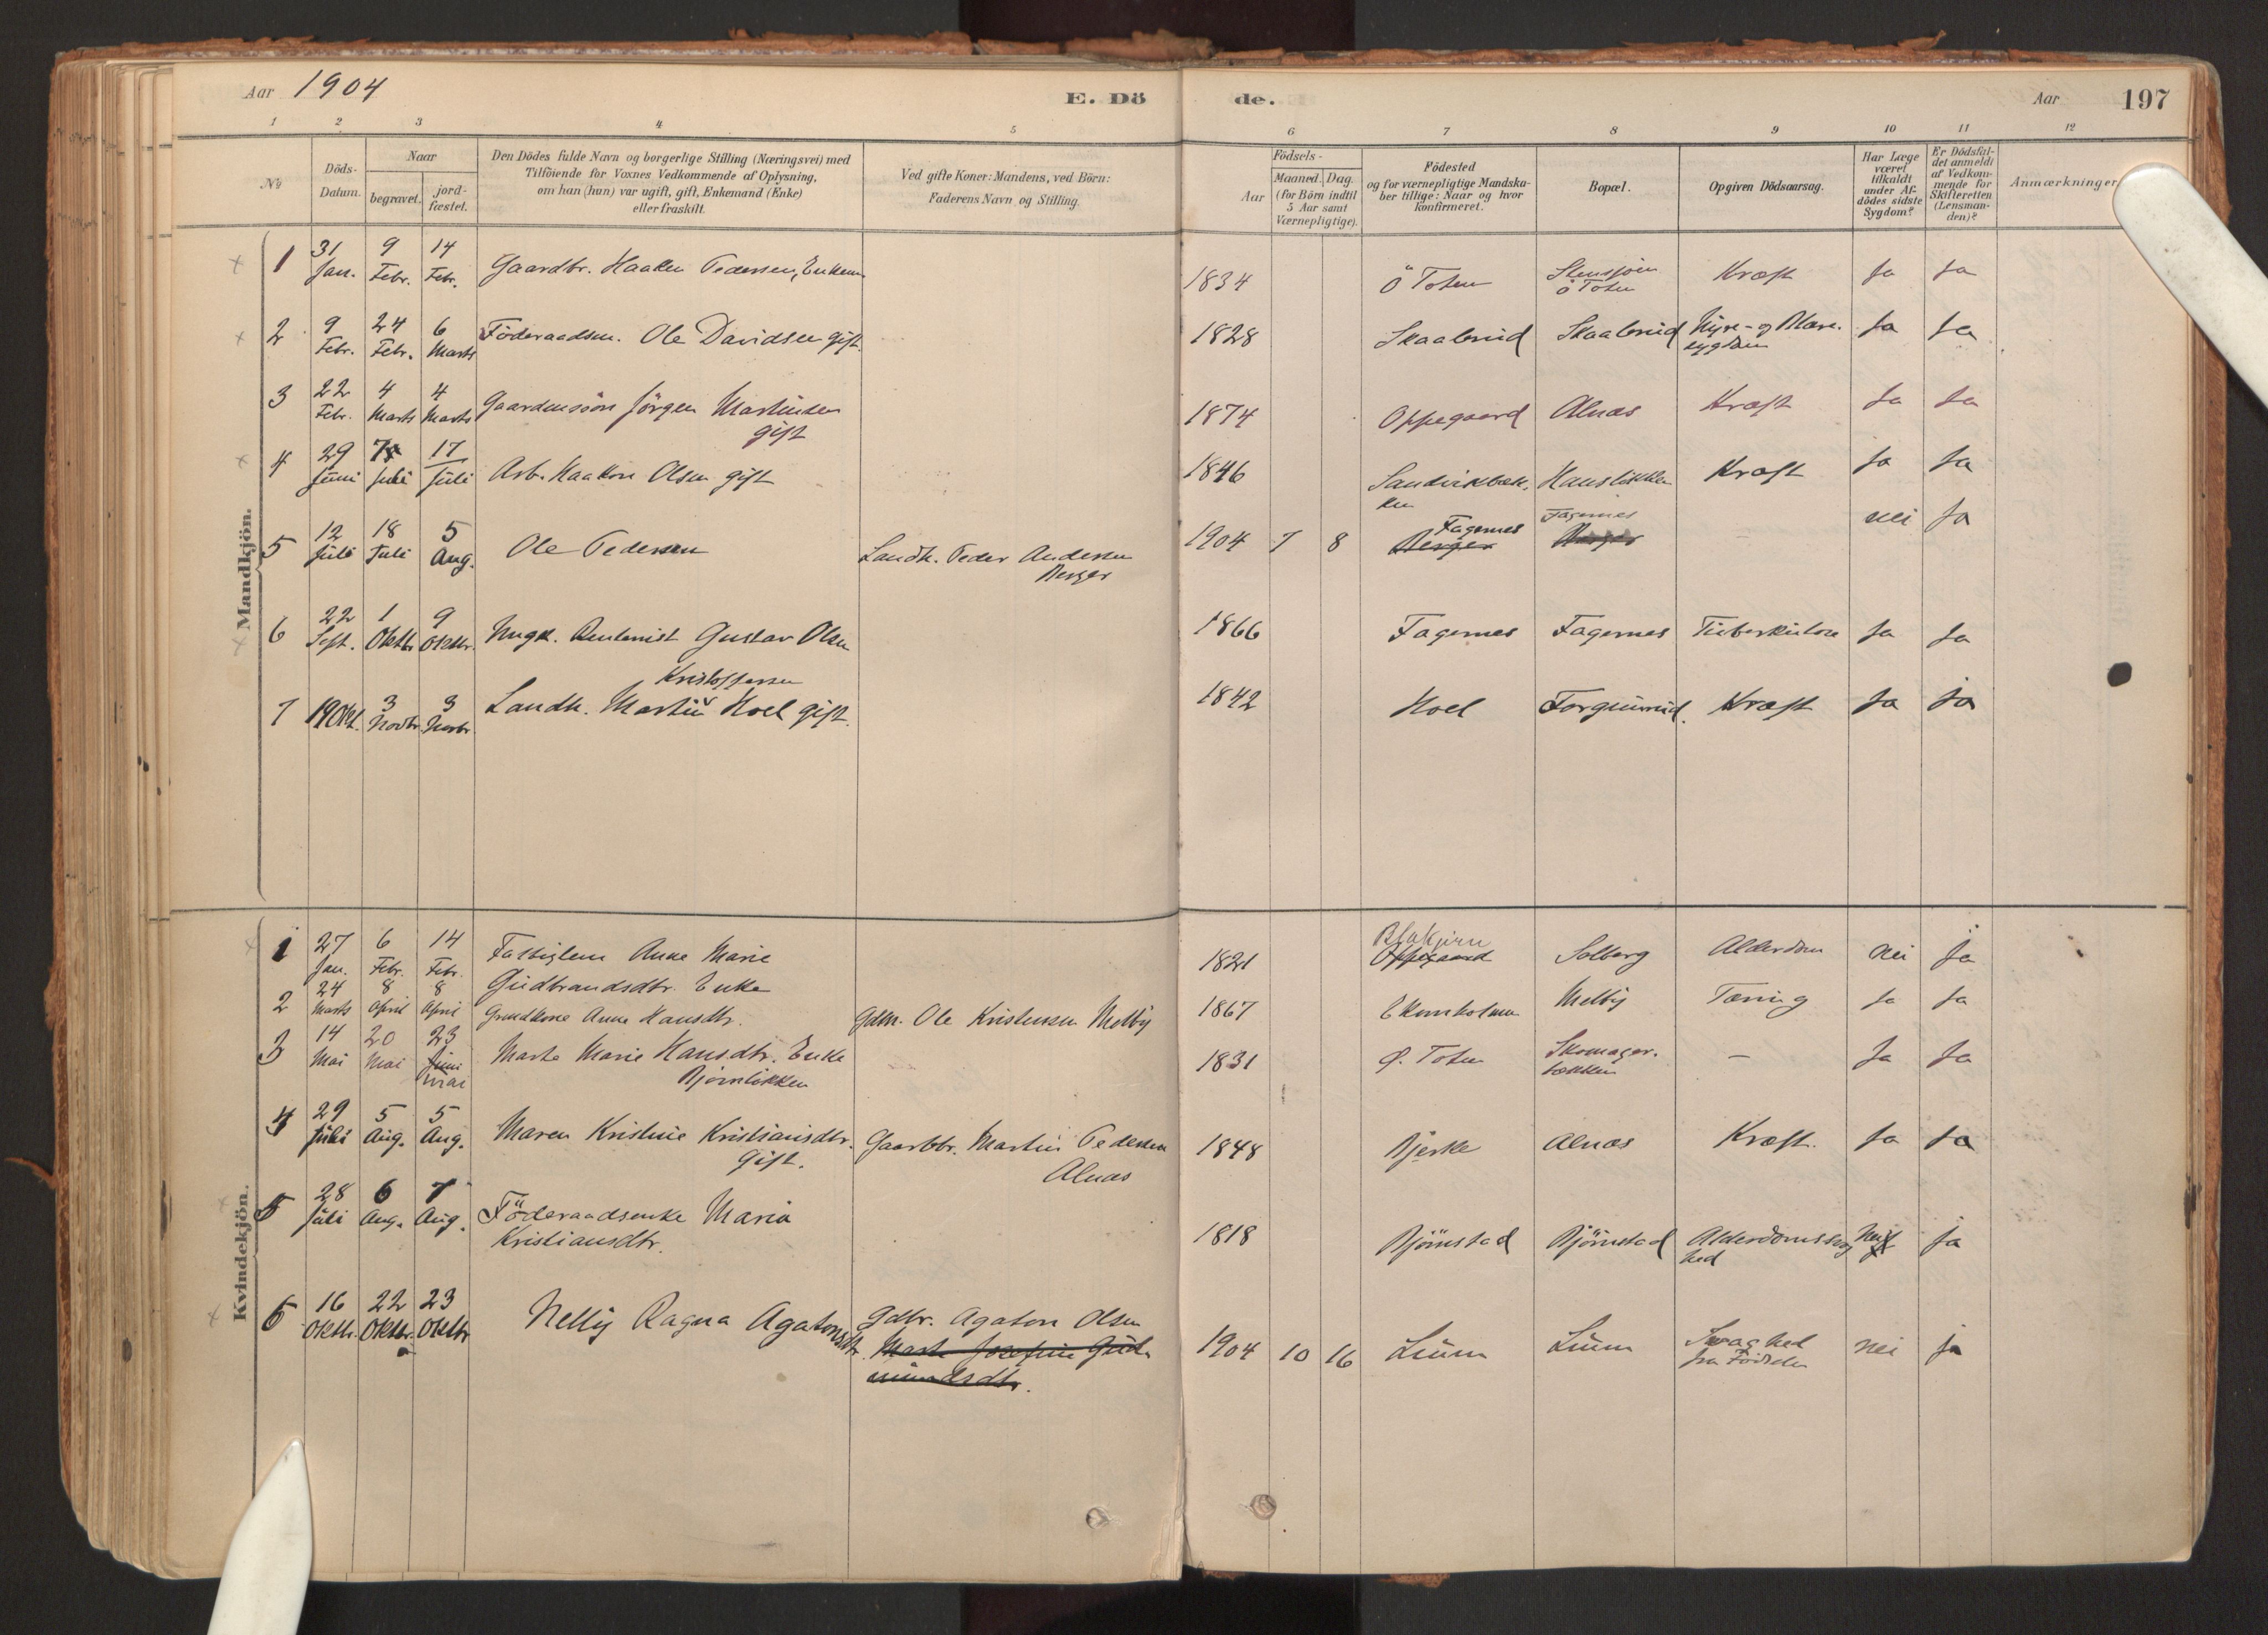 Aar 1904
E. Dö
de.
Aar
197
1 2 3 4 5
6 7 8 9 10 11 12
No
Döds-
Datum.
Naar
begravet.
jord-
fæstet.
Den Dödes fulde Navn og borgerlige Stilling (Næringsvei) med
Tilföiende for Voxnes Vedkommende af Oplysning,
om han (hun) var ugift, gift, Enkemand (Enke)
eller fraskilt.
Ved gifte Koner: Mandens, ved Börn:
Faderens Navn og Stilling.
Födsels-
Aar
Maaned. Dag.
(for Börn indtil
5 Aar samt
Værnepligtige).
Födested
og for værnepligtige Mandska-
ber tillige: Naar og hvor
konfirmeret.
Bopæl.
Opgiven Dödsaarsag.
Har Læge
været
tilkaldt
under Af-
dödes sidste
Sygdom?
Er Dödsfal-
det anmeldt
af Vedkom-
mende for
Skifteretten
(Lensman-
den)?
Anmærkninger
Mandkjön.
1 31 Jan. 9 Febr. 14 Febr. Gaardbr. Haaken Pedersen, Enkem 1834 Ö Toten Ö Toten Kræft Ja Ja
2 9 Febr. 24 Febr. 6 Marts Föderaadsm. Ole Davidsen gift. 1828 Skaalerud Skaalerud Nyre- og Blære-
sygdom Ja Ja
3 22 Febr. 4 Marts 4 Marts Gaardmansön Jörgen Martinsen
gift 1874 Oppegaard Alnæs Kræft Ja Ja
4 29 Juni Juli 17 Juli Arb. Haakon Olsen gift 1846 Sandvikbæk-
ken Kræft Ja Ja
5 12 Juli 18 Juli 5 Aug. Ole Pedersen Landh. Peder Andersen
Berger 1904 7 8 Fagernes
Berger Fagernes
Berger nei Ja
6 22 Sept. 1 Oktbr 9 Oktbr. Ungk. Rentenist Gustav Olsen 1866 Fagernes Fagernes Tuberkulose Ja Ja
Kristoffersen
7 19 Okt. 3 Novbr. 3 Novbr Landh. Martin Hoel gift. 1842 Hoel Torgunrud. Kræft Ja ja
Kvindekjön.
1 27 Jan. 6 Febr. 14 Febr. Fattiglem Anne Marie
Gudbrandsdtr. Enke 1821 Blakjern
Oppegaard Solberg Alderdom nei ja
2 24 Marts 8 April 8 April Grundkone Anne Hansdtr. Gdm. Ole Kristensen Melby 1867 Ekornholmen Melby Tæring Ja Ja
3 14 Mai 20 Mai 23 Juni
Mai Marte Marie Hansdtr. Enke
Björnlikken 1831 Ø. Toten Skomager-
bakken — Ja Ja
4 29 Juli 5 Aug. 5 Aug. Maren Kristine Kristiansdtr.
Gift. Gaardbr. Martin Pedersen
Alnæs 1848 Bjerke Alnæs Kræft. Ja Ja
5 28 Juli 6 Aug. 7 Aug. Föderaadsenke Maria
Kristiansdtr. 1818 Björnstad Björnstad Alderdomssvag
hed Nei Ja
6 16 Oktbr. 22 Oktbr. 23 Oktbr Nelly Ragna Agatonsdtr. Gdbr. Agaton Olsen
Marte Josefine Gud-
mundsdtr. 1904 10 16 Liüm Liüm Svaghed
fra Födselen nei ja